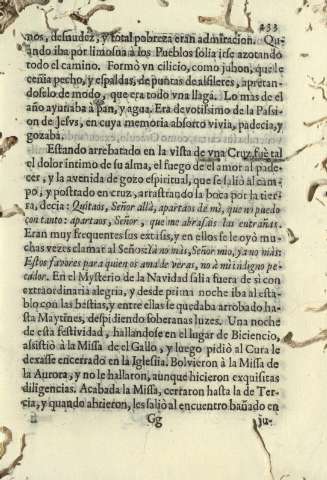 233
nos, desnudez, y total pobreza eran admiracion. Qu-
ando iba por limosna à los Pueblos solia irse azotando
todo el camino. Formò vn cilicio, como jubon, que le
ceñia pecho, y espaldas, de puntas de alfileres, apretan-
doselo de modo, que era todo vna llaga. Lo mas de el
año ayunaba à pan, y agua. Era devotisimo de la Passi-
on de Jesvs, en cuya memoria absorto vivia, padecia, y
gozaba.
Estando arrebatado en la vista de vna Cruz, fuè tal
el dolor intimo de su alma, el fuego de el amor al pade-
cer, y la avenida de gozo espiritual, que se saliò al cam-
po, y postrado en cruz, arrastrando la boca por la tier-
ra, decia: Quitaos, Señor allà, apartaos de mì, que no puedo
con tanto: apartaos, Señor, que me abrasais las entrañas.
Eran muy frequentes sus extasis, y en ellos se le oyò mu-
chas vezes clamar al Señor: Yà no màs, Señor mio, yà no màs:
Estos favores para quien os ama de veras, no à mi indigno pe-
cador. En el Mysterio de la Navidad salia fuera de sì con
extraordinaria alegria, y desde prima noche iba al esta-
blo con las bestias, y entre ellas le quedaba arrobado ha-
sta Maytines, despidiendo soberanas luzes. Una noche
de esta festividad, hallandose en el lugar de Biciencio,
assistiò à la Missa de el Gallo, y luego pidiò al Cura le
dexasse encerrado en la Iglesia. Bolvieron à la Missa de
la Aurora, y no le hallaron, aunque hicieron exquisitas
diligencias. Acabada la Missa, cerraron hasta la de Ter-
cia, y quando abrieron, les saliò al encuentro bañado en
Gg
ju-